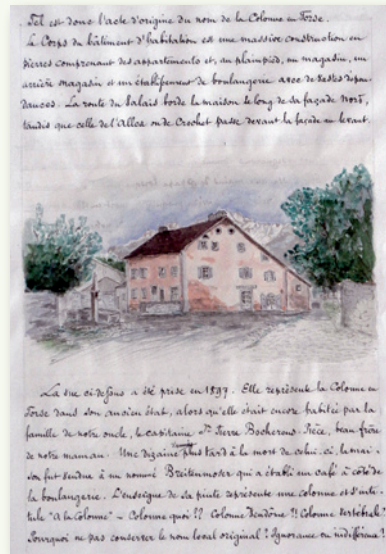 Tel est donc l'acte d'origine du nom de la Colonne en Torse.
Le Corps du bâtiment d'habitation est une massive construction en
pierres comprenant des appartements et, au plainpied, un magasin, un
arrière magasin et un établissement de boulangerie avec de vastes dépen-
dances. La route du Valais borde la maison le long de sa façade nord,
tandis que celle de l'Allex ou de Crochet passe devant la façade au levant.
La vue ci-dessus a été prise en 1897. Elle représente la Colonne en
Torse dans son ancien état, alors qu'elle était encore habitée par la
famille de notre oncle, le capitaine Pierre Bocherens, beau frère
de notre maman. Une dizaine plus tard à la mort de celui-ci, la mai-
son fut vendue à un nommé Breitenmoser qui a établi un café à côté de
la boulangerie. L'enseigne de sa pinte représente une colonne et s'inti-
tule "A la Colonne" – Colonne quoi ?? Colonne Vendôme ?! Colonne vertébrale ?
Pourquoi ne pas conserver le nom local original ? Ignorance ou indifférence ?